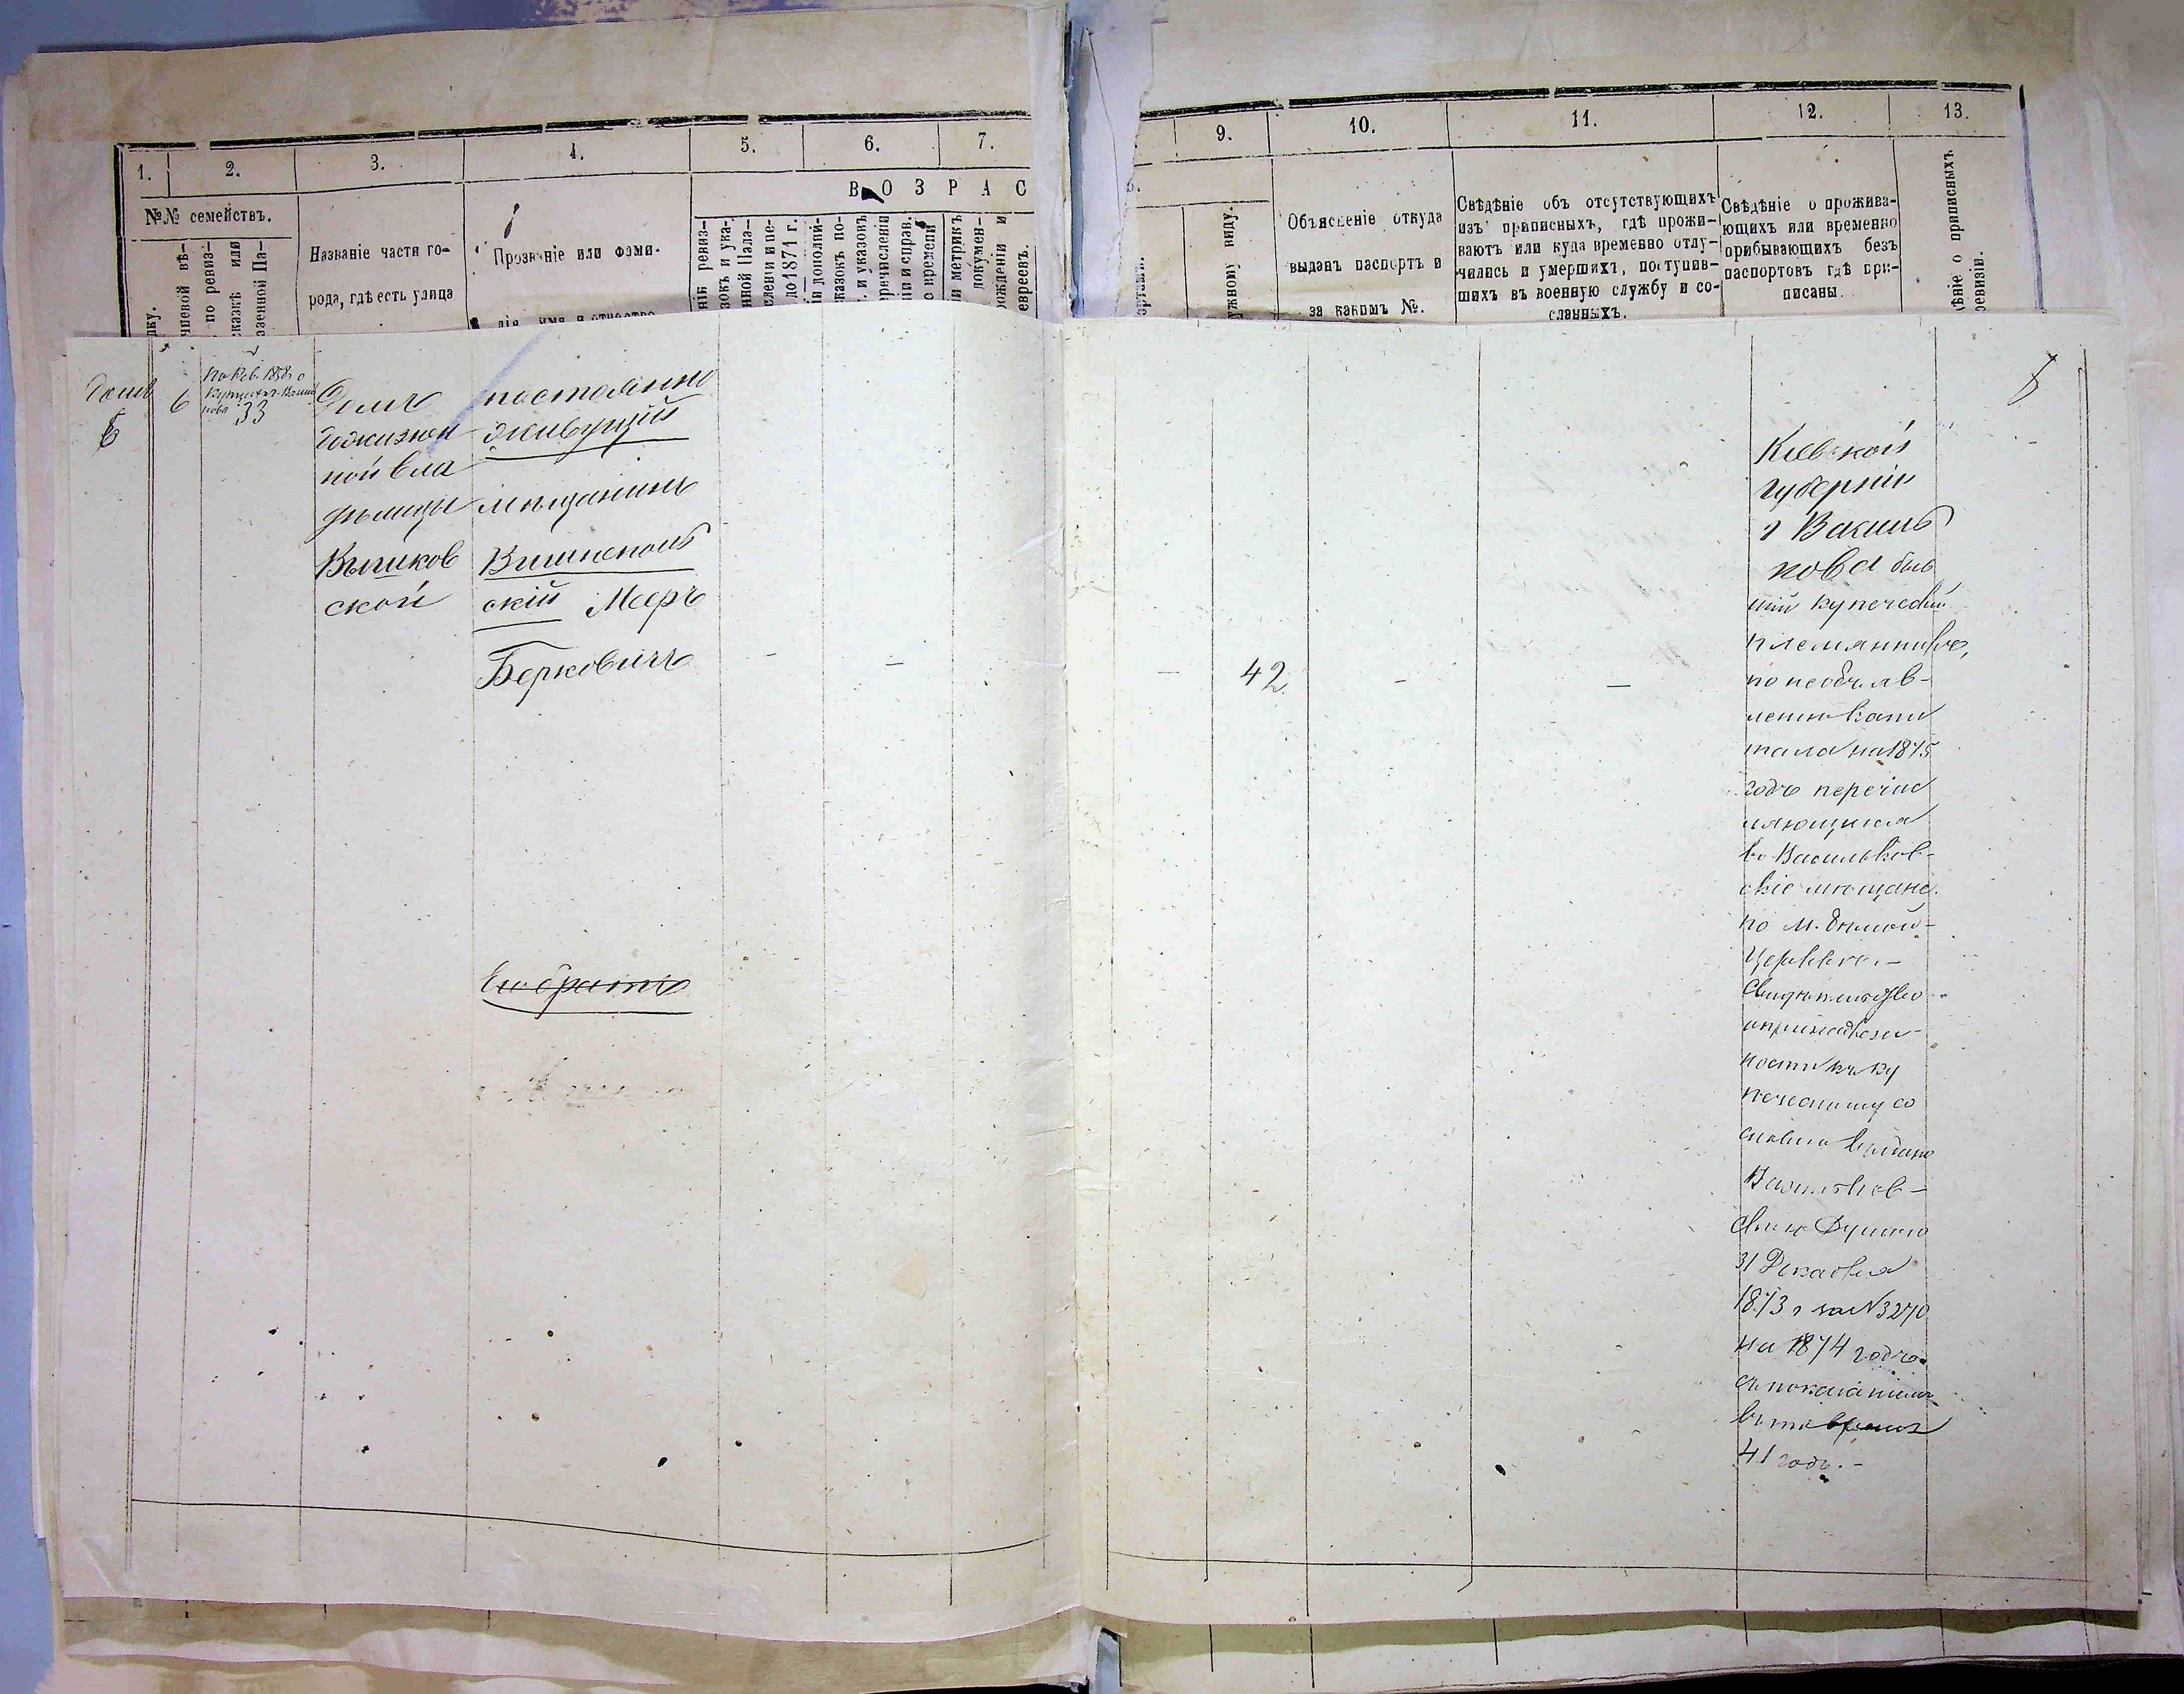 1.
2.
3.
4.
5.
6.
7.
9.
10.
11.
12.
13.
В О З Р А С
№№ семействъ.
Названіе части го-
рода, гдѣ есть улица
Прозваніе или фами-
до 1871 г.
ужному виду.
Объясненіе откуда
выданъ паспортъ и
за какимъ №.
Свѣдѣніе объ отсутствующихъ
изъ приписныхъ, гдѣ прожи-
ваютъ или куда временно отлу-
чились и умершихъ, поступив-
шихъ въ военную службу и со-
сланныхъ.
Свѣдѣніе о прожива-
ющихъ или временно
прибывающихъ безъ
паспортовъ гдѣ при-
писаны.
дѣніе о приписныхъ
ревизіи.
6
По Рев. 1858 г
33
Домъ
пожизнен
ной вла
дѣлицы
ской
постоянно
живущій
мѣщанинъ
Вишнеполь
скій Мееръ
Берковичъ
Его братъ
42
Кіевской
губерніи
г Василь
кова быв
шій купеческій
племянникъ,
по необъяв-
ленію капи
тала на 1875
годъ перечис
ляющійся
въ Васильков-
скіе мѣщане
по м. Бѣлой-
Церкви.-
Свидѣтельство
о принадлеж-
ности къ ку
печескому со
словію выдано
Васильков-
скою Думою
31 Декабря
1873 г за N 3270
на 1874 годъ
съ показаніемъ
въ то время
41 годъ.-